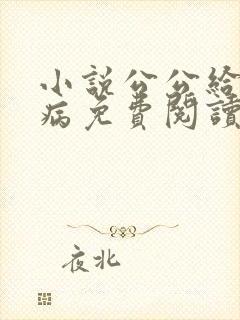 小說公公給
病免費閱讀
夜北